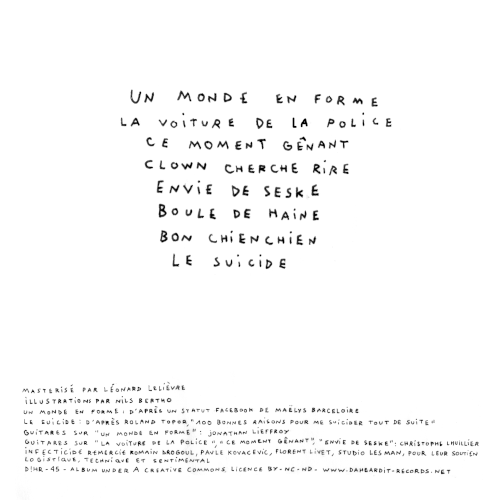 UN MONDE EN FORME
LA VOITURE DE LA POLICE
CE MOMENT GÊNANT
CLOWN CHERCHE RIRE
ENVIE DE SESKE
BOULE DE HAINE
BON CHIENCHIEN
LE SUICIDE
MASTERISÉ PAR LÉONARD LELIÈVRE
ILLUSTRATIONS PAR NILS BERTHO
UN MONDE EN FORME : D'APRÈS UN STATUT FACEBOOK DE MAËLYS BARCELOIRE
LE SUICIDE : D'APRÈS ROLAND TOPOR "100 BONNES RAISONS POUR ME SUICIDER TOUT DE SUITE"
GUITARES SUR "UN MONDE EN FORME" : JONATHAN LIEFFROY
GUITARES SUR "LA VOITURE DE LA POLICE", "CE MOMENT GÊNANT", "ENVIE DE SESKE" : CHRISTOPHE LHUILLIER
INFECTICIDE REMERCIE ROMAIN DROGOUL, PAULE KOVACEVIC, FLORENT LIVET, STUDIO LESMAN, POUR LEUR SOUTIEN
LOGISTIQUE, TECHNIQUE ET SENTIMENTAL
D!HR-45 - ALBUM UNDER A CREATIVE COMMONS LICENCE BY-NC-ND - WWW.DAHEARDIT-RECORDS.NET